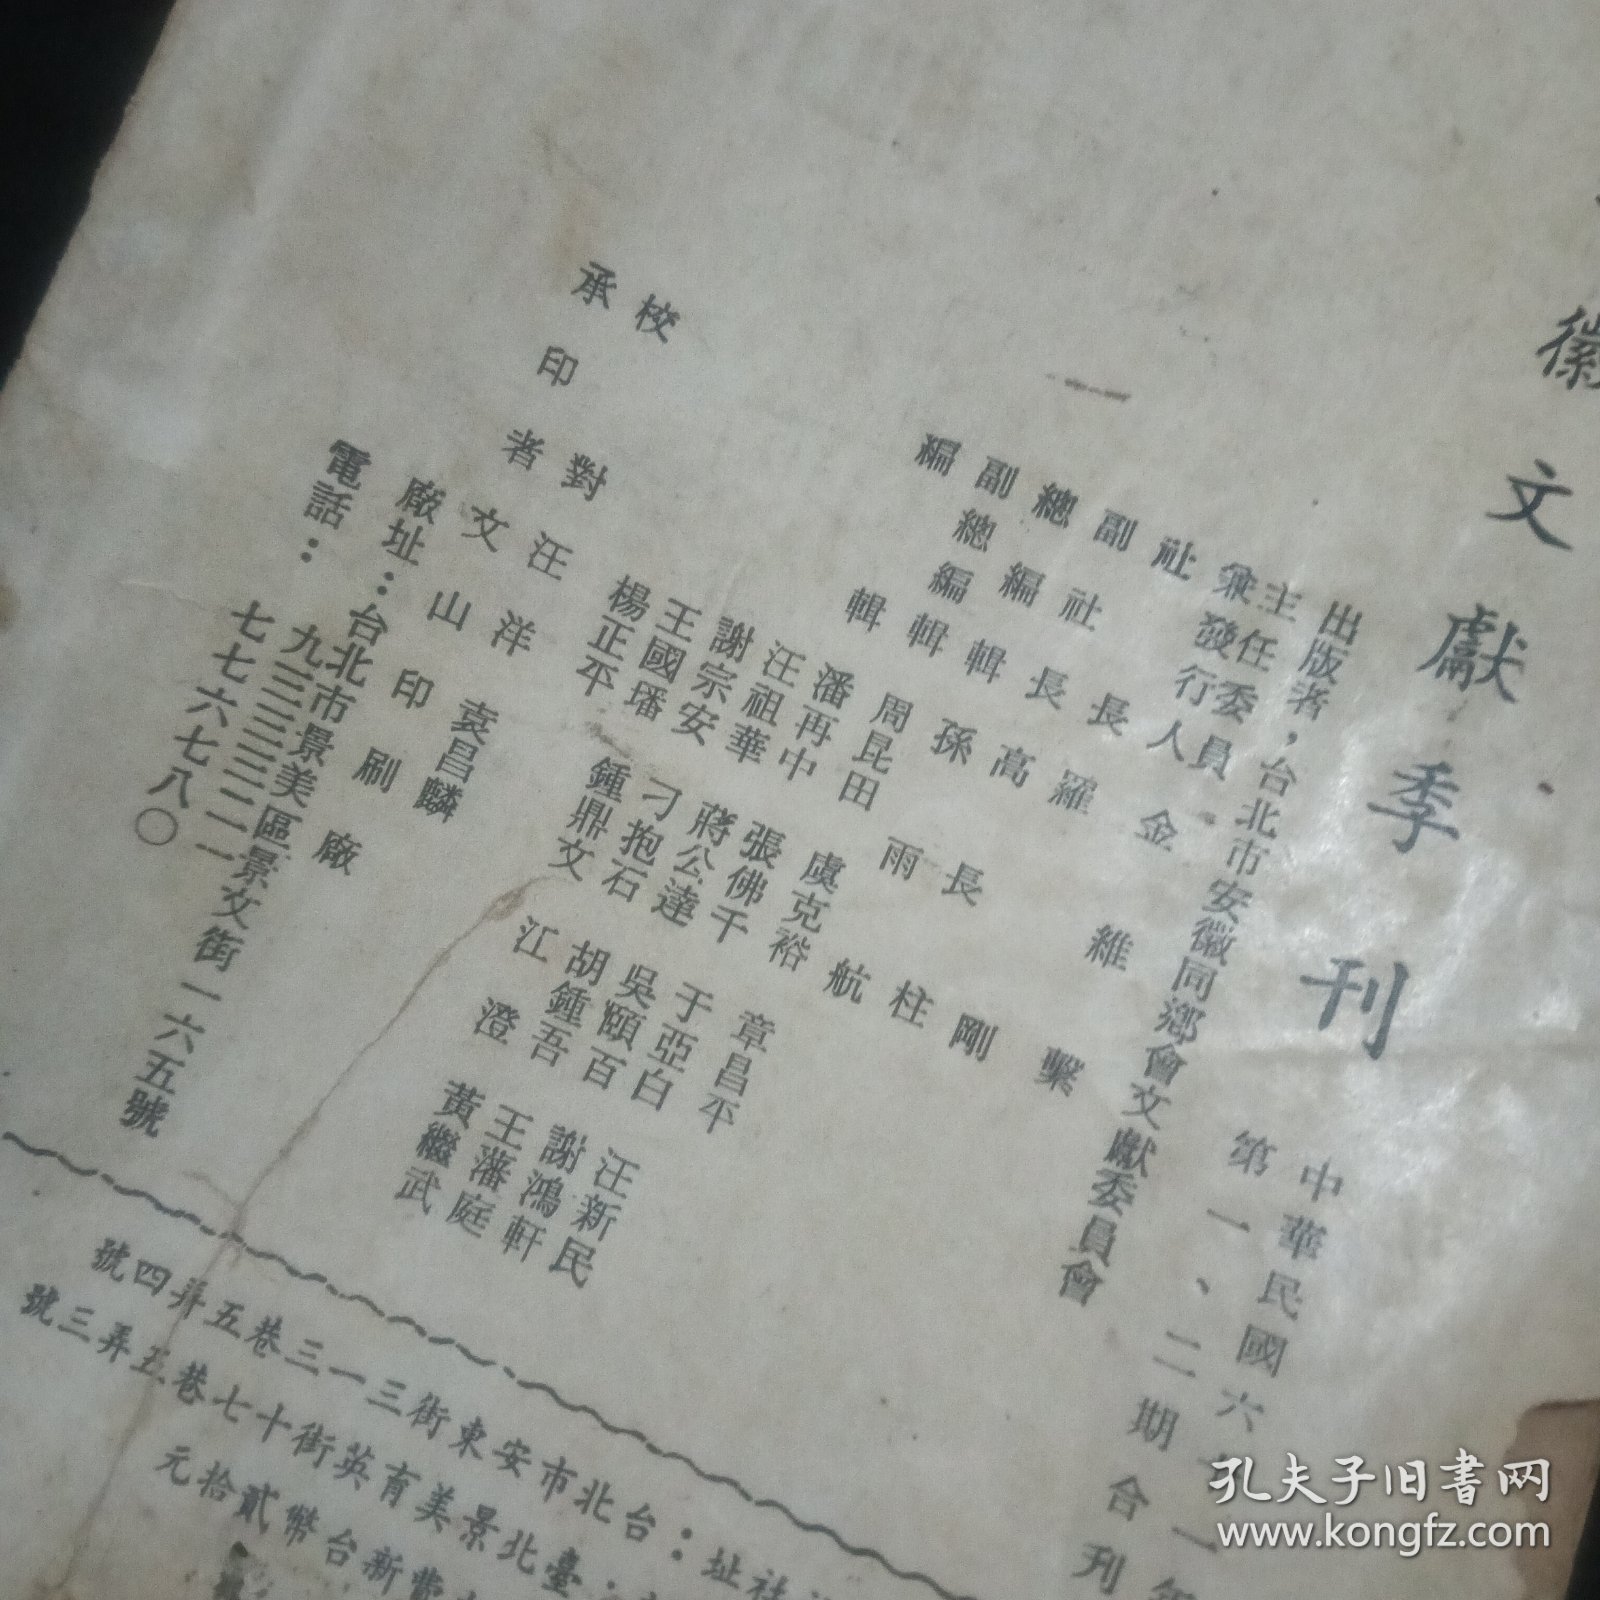 徽文獻季刊
中華民國六
第一、二期合刊
出版者，台北市安徽同鄉會文獻委員會
主任委員
兼發行人 金維繫
社長 羅剛
副社長 高長柱
總編輯 孫雨航
副總編輯 周昆田 虞克裕 章昌平
編輯 潘再中 張佛千 于亞白 汪新民
汪祖華 蔣公達 吳頤百 謝鴻軒
謝宗安 刁抱石 胡鍾吾 王藩庭
王國璠 鍾鼎文 江澄 黃繼武
楊正平
校對 汪洋 袁昌麟
承印者 文山印刷廠
廠址：台北市景美區景文街一六五號
電話：
七七六七八〇
社址：台北市安東街三一三巷五弄四號
臺北景美育英街十七巷五弄三號
費新台幣貳拾元
孔夫子旧书网
www.kongfz.com